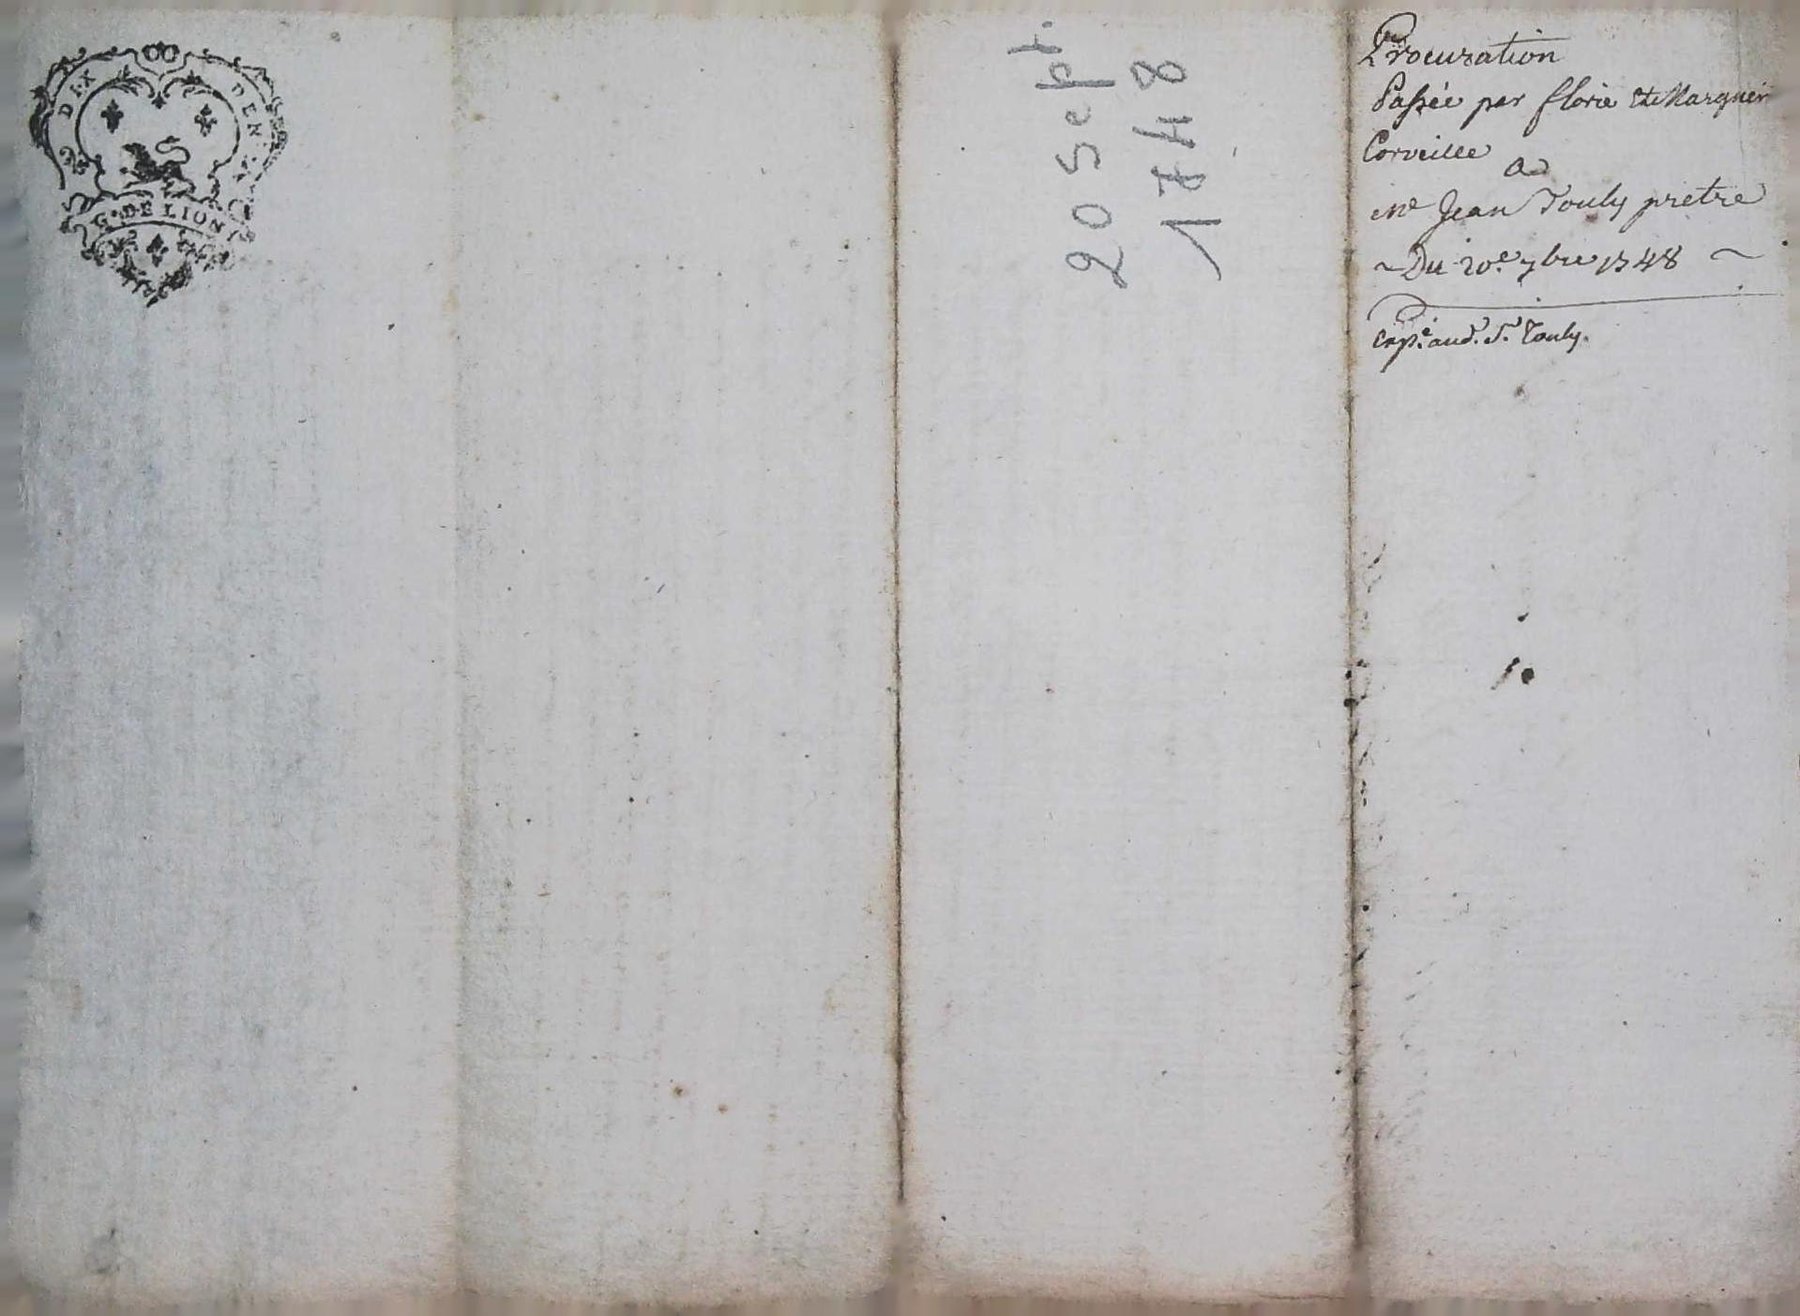 DIX DEN.
G. DE LION
20 Sept.
1748
Procuration
Passée par florie et Marguer
Corveille
A
Me Jean Touly pretre
~ Du 20e 7bre 1748 ~
Exp.é aud. S.r Touly.